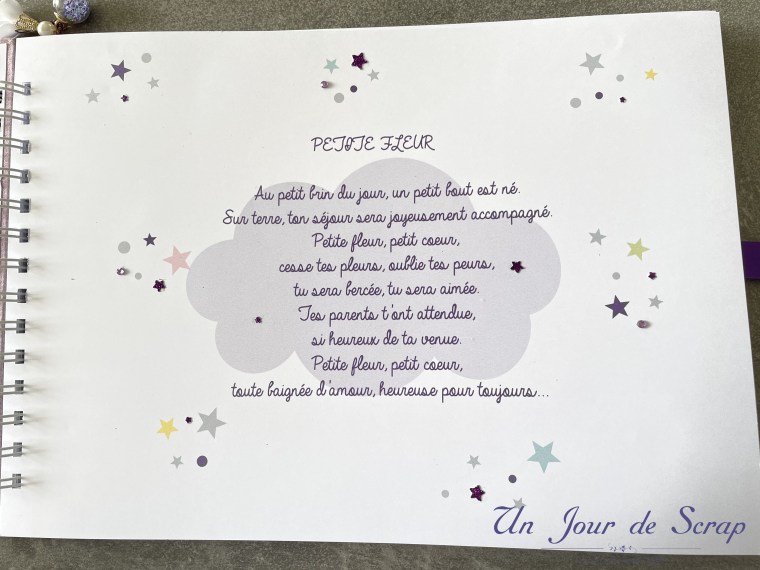 PETITE FLEUR
Au petit brin du jour, un petit bout est né.
Sur terre, ton séjour sera joyeusement accompagné.
Petite fleur, petit coeur,
cesse tes pleurs, oublie tes peurs,
tu sera bercée, tu sera aimée.
Tes parents t'ont attendue,
si heureux de ta venue.
Petite fleur, petit coeur,
toute baignée d'amour, heureuse pour toujours...
Un Jour de Scrap